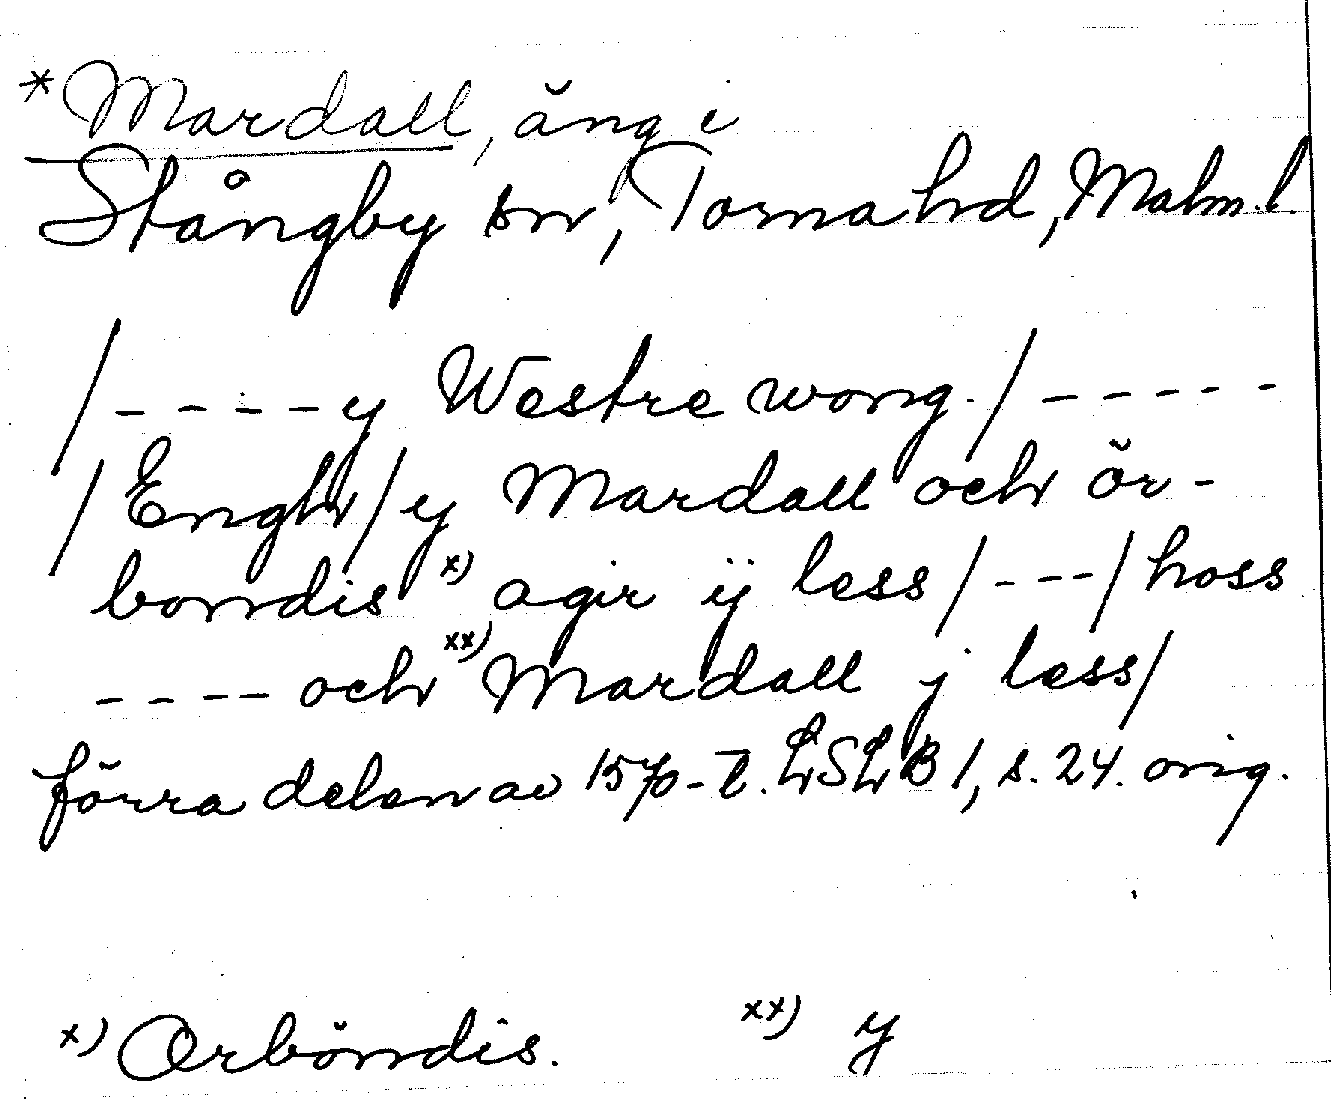 *Mardall, äng i
Stångby sn, Torna hd, Malm. l
/----y Westre wong./-----
/Engh/y Mardall och ör-
bondis x) agir ij less/---/hoss
----och xx) Mardall j less/
förra delen av 1570-t. LSLB 1, s. 24. orig.
x) Orböndis. xx) y